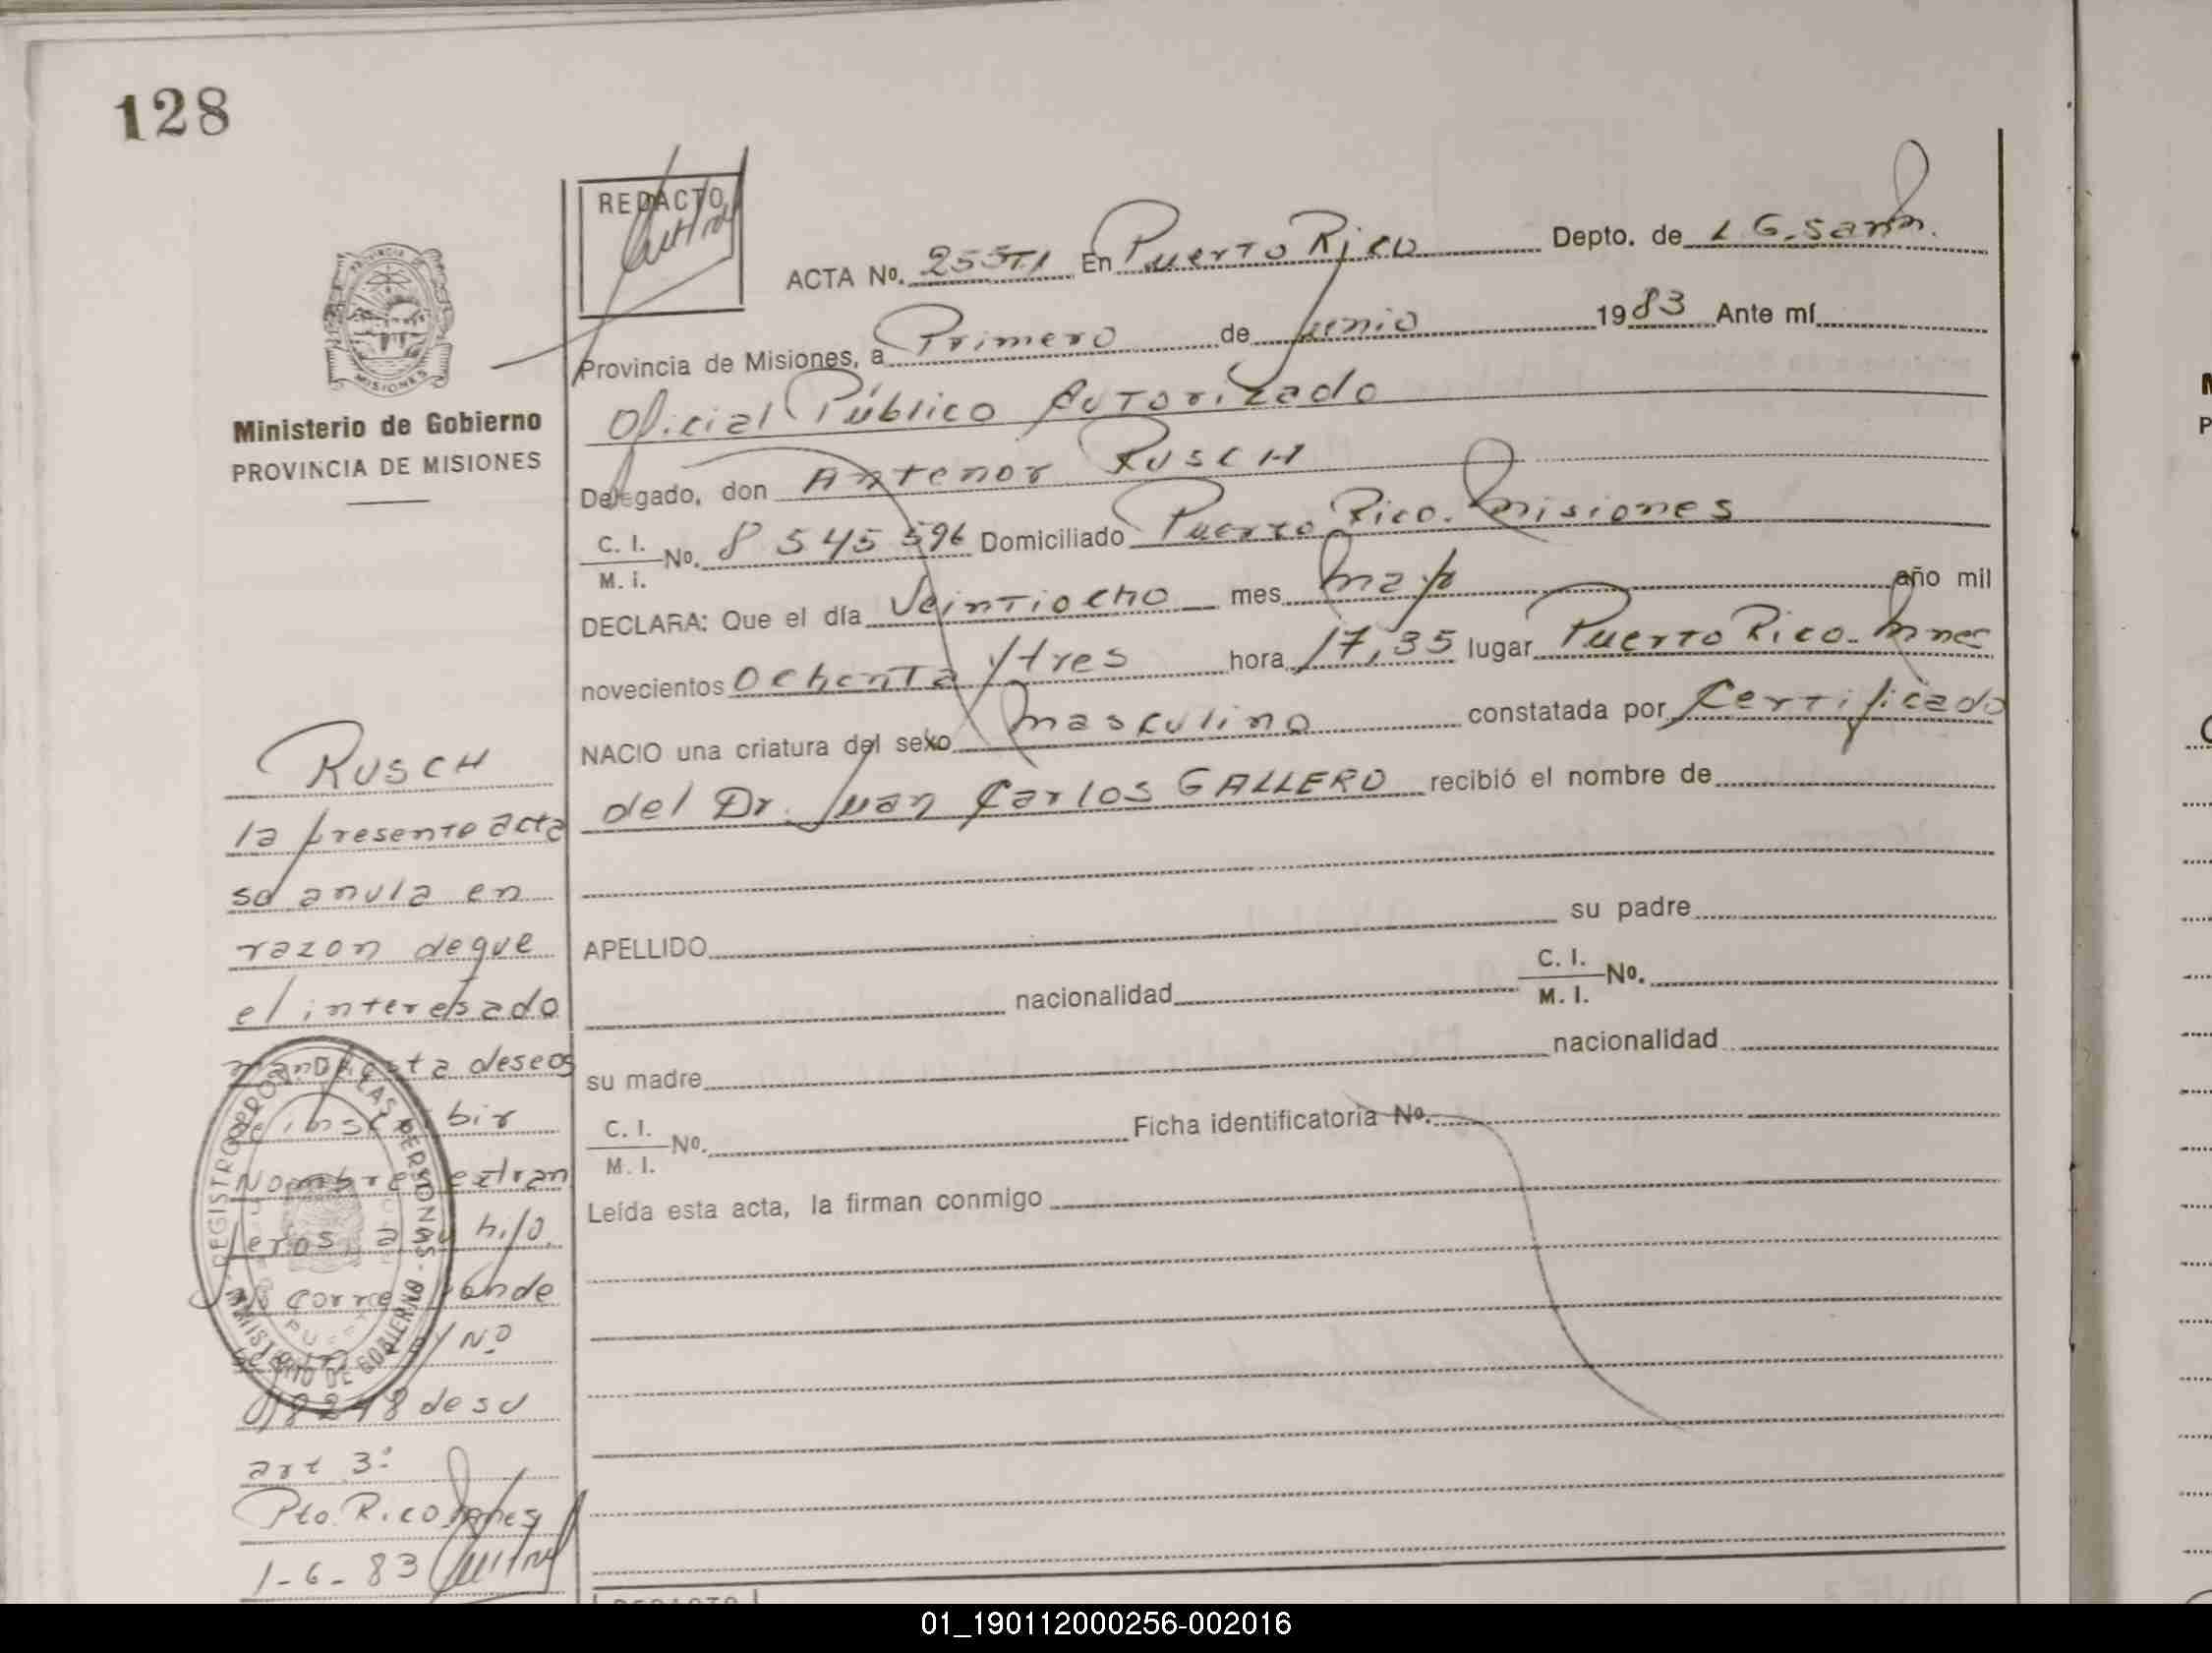 128
REDACTO
ACTA No. 255T1 En Puerto Rico Depto. de L G. San m.
Provincia de Misiones, a Primero de Junio 1983 Ante mí
Oficial Público Autorizado
Delegado, don Antenor RUSCH
C. I. / M. i. No. 8 545 596 Domiciliado Puerto Rico. Misiones
DECLARA: Que el día Veintiocho mes mayo año mil
novecientos Ochenta y tres hora 17,35 lugar Puerto Rico. Mnes
NACIO una criatura del sexo masculino constatada por Certificado
del Dr. Juan Carlos GALLERO recibió el nombre de
APELLIDO su padre
nacionalidad C. I. / M. I. No.
su madre nacionalidad
C. I. / M. I. No. Ficha identificatoria No.
Leída esta acta, la firman conmigo
MISIONES
Ministerio de Gobierno
PROVINCIA DE MISIONES
RUSCH
la presente acta
se anula en
razon de que
el interesado
manifiesta deseos
de inscribir
Nombres extran
jeros, a su hijo.
No corresponde
según ley No
018248 de su
art 3º
Pto. Rico Mnes
1-6-83
REGISTRO PROV. DE LAS PERSONAS
MINISTERIO DE GOBIERNO
01_190112000256-002016